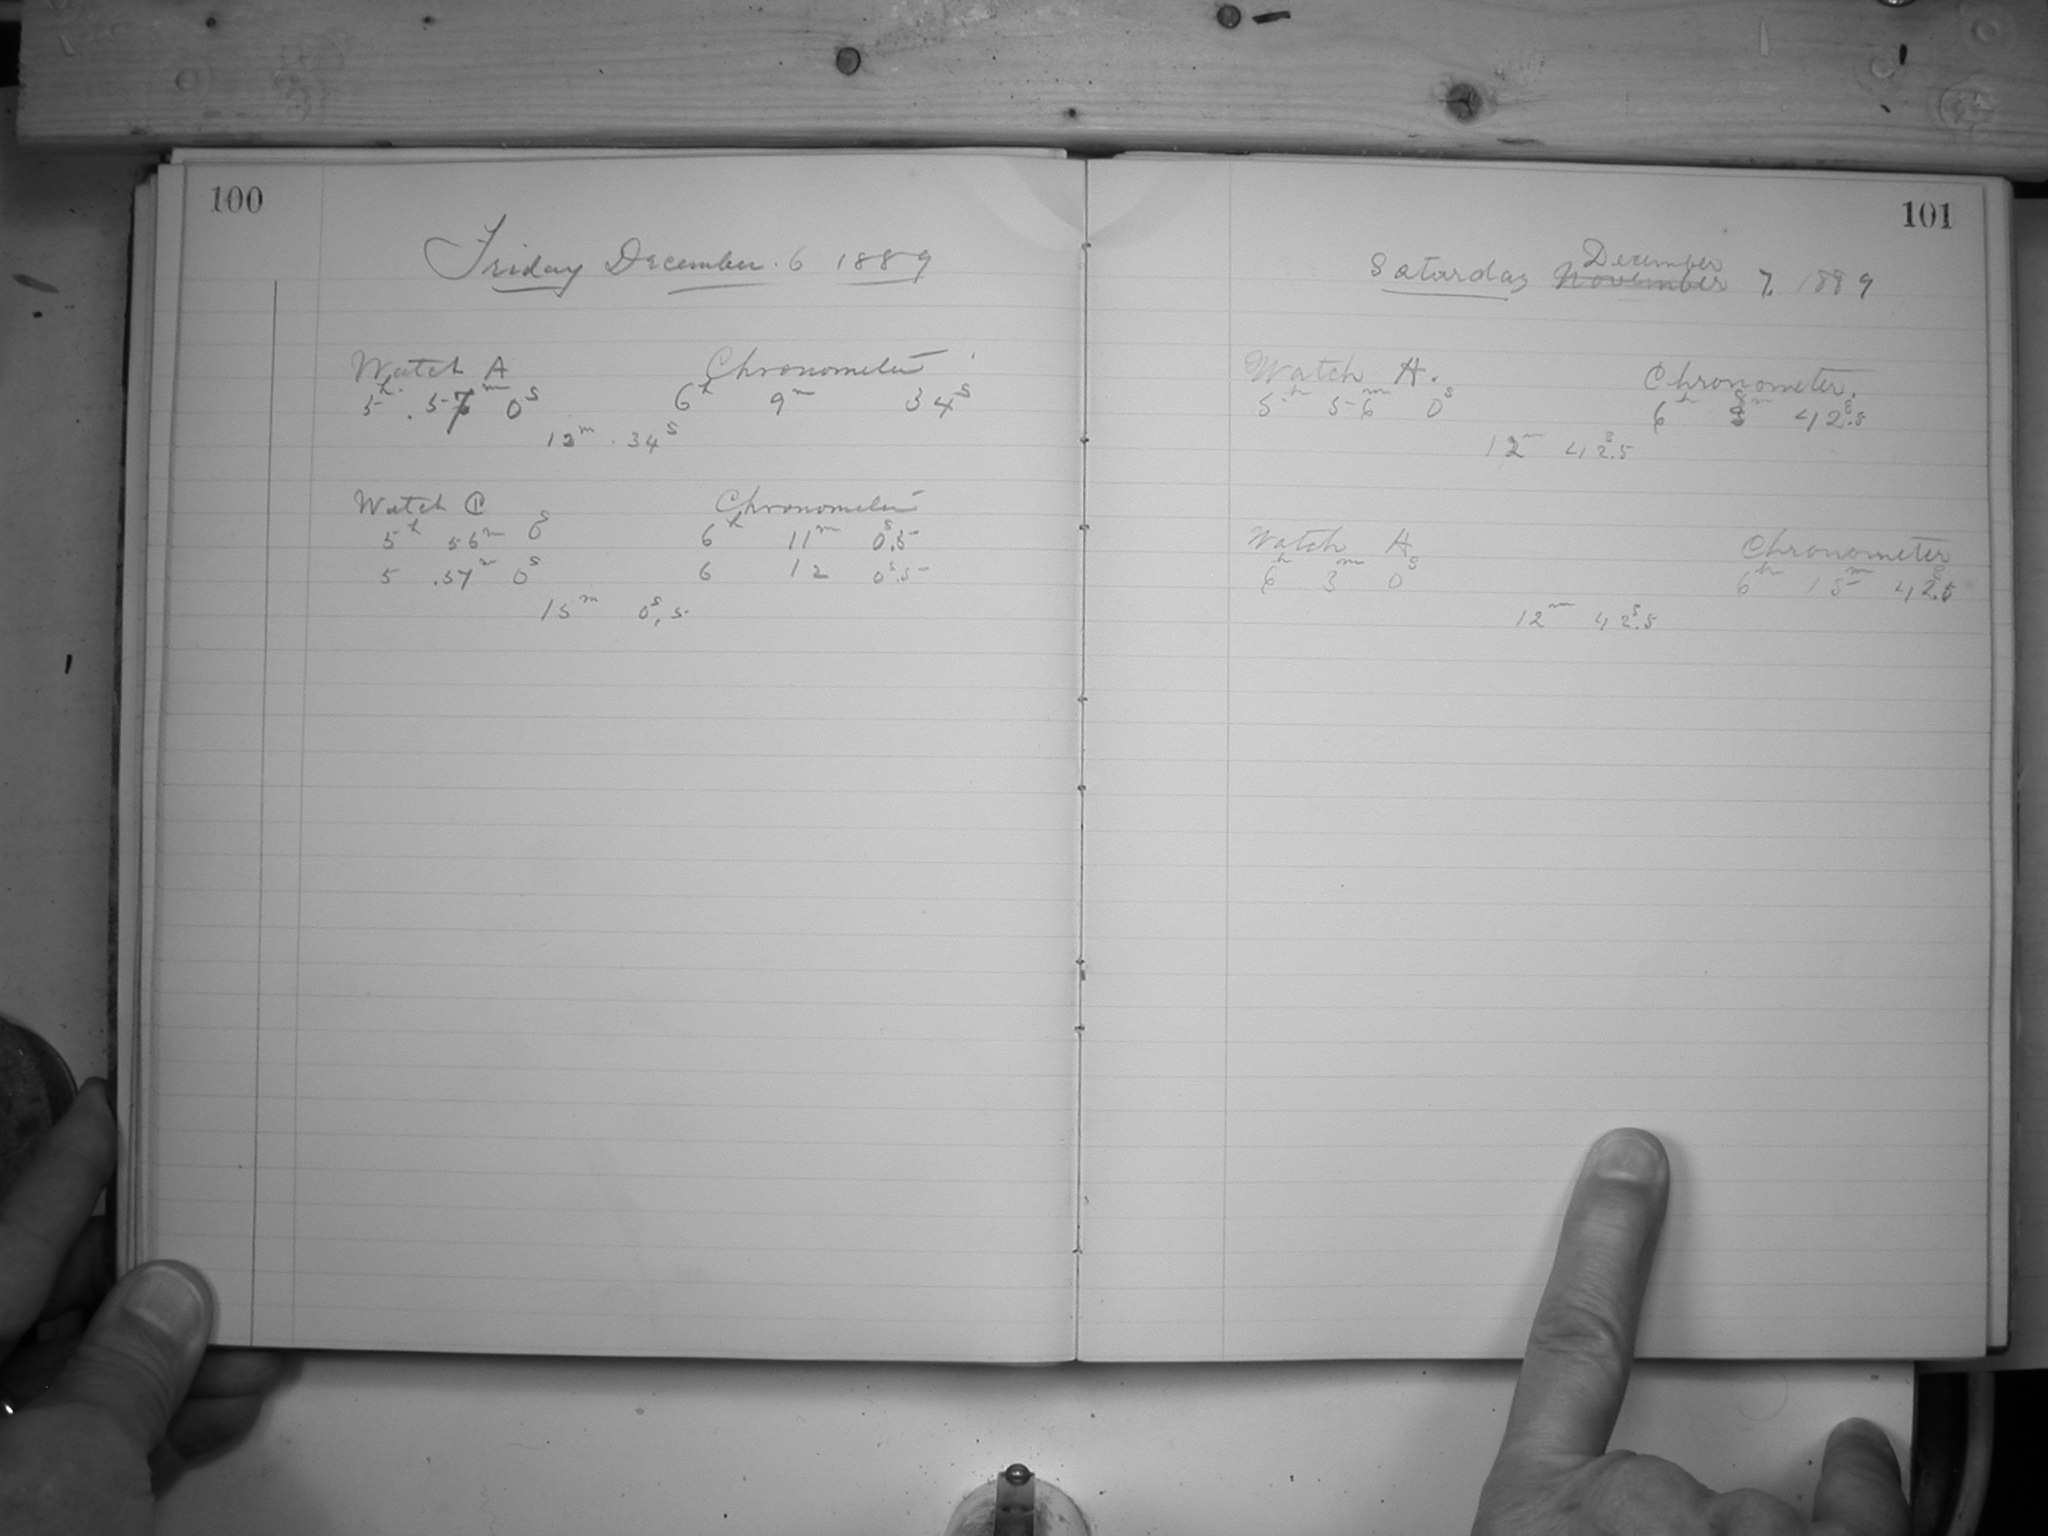 100
Friday December. 6 1889
Watch A Chronometer
5h. 57m 0s 6h 9m 34s
12m. 34s
Watch C Chronometer
5h 56m 0s 6h 11m 0s.5
5 .57m 0s 6 12 0s.5
15m 0s.5
101
December
Saturday November 7. 1889
Watch A. Chronometer.
5h 56m 0s 6h 8m 42s.5
12m 42s.5
Watch A Chronometer
6h 3m 0s 6h 15m 42s.5
12m 42s.5